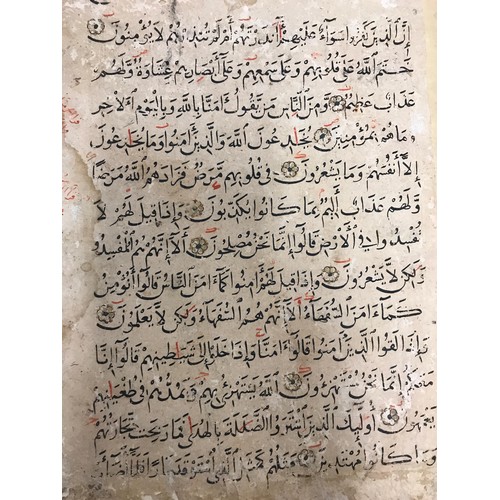 إِنَّ الَّذِينَ كَفَرُوا سَوَاءٌ عَلَيْهِمْ أَأَنْذَرْتَهُمْ أَمْ لَمْ تُنْذِرْهُمْ لَا يُؤْمِنُونَ
خَتَمَ اللَّهُ عَلَى قُلُوبِهِمْ وَعَلَى سَمْعِهِمْ وَعَلَى أَبْصَارِهِمْ غِشَاوَةٌ وَلَهُمْ
عَذَابٌ عَظِيمٌ وَمِنَ النَّاسِ مَنْ يَقُولُ آمَنَّا بِاللَّهِ وَبِالْيَوْمِ الْآخِرِ
وَمَا هُمْ بِمُؤْمِنِينَ يُخَادِعُونَ اللَّهَ وَالَّذِينَ آمَنُوا وَمَا يُخَادِعُونَ
إِلَّا أَنْفُسَهُمْ وَمَا يَشْعُرُونَ فِي قُلُوبِهِمْ مَرَضٌ فَزَادَهُمُ اللَّهُ مَرَضًا
وَلَهُمْ عَذَابٌ أَلِيمٌ بِمَا كَانُوا يَكْذِبُونَ وَإِذَا قِيلَ لَهُمْ لَا
تُفْسِدُوا فِي الْأَرْضِ قَالُوا إِنَّمَا نَحْنُ مُصْلِحُونَ أَلَا إِنَّهُمْ هُمُ الْمُفْسِدُونَ
وَلَكِنْ لَا يَشْعُرُونَ وَإِذَا قِيلَ لَهُمْ آمِنُوا كَمَا آمَنَ النَّاسُ قَالُوا أَنُؤْمِنُ
كَمَا آمَنَ السُّفَهَاءُ أَلَا إِنَّهُمْ هُمُ السُّفَهَاءُ وَلَكِنْ لَا يَعْلَمُونَ
وَإِذَا لَقُوا الَّذِينَ آمَنُوا قَالُوا آمَنَّا وَإِذَا خَلَوْا إِلَى شَيَاطِينِهِمْ قَالُوا إِنَّا
مَعَكُمْ إِنَّمَا نَحْنُ مُسْتَهْزِئُونَ اللَّهُ يَسْتَهْزِئُ بِهِمْ وَيَمُدُّهُمْ فِي طُغْيَانِهِمْ
يَعْمَهُونَ أُولَئِكَ الَّذِينَ اشْتَرَوُا الضَّلَالَةَ بِالْهُدَى فَمَا رَبِحَتْ تِجَارَتُهُمْ
وَمَا كَانُوا مُهْتَدِينَ مَثَلُهُمْ كَمَثَلِ الَّذِي اسْتَوْقَدَ نَارًا فَلَمَّا أَضَاءَتْ